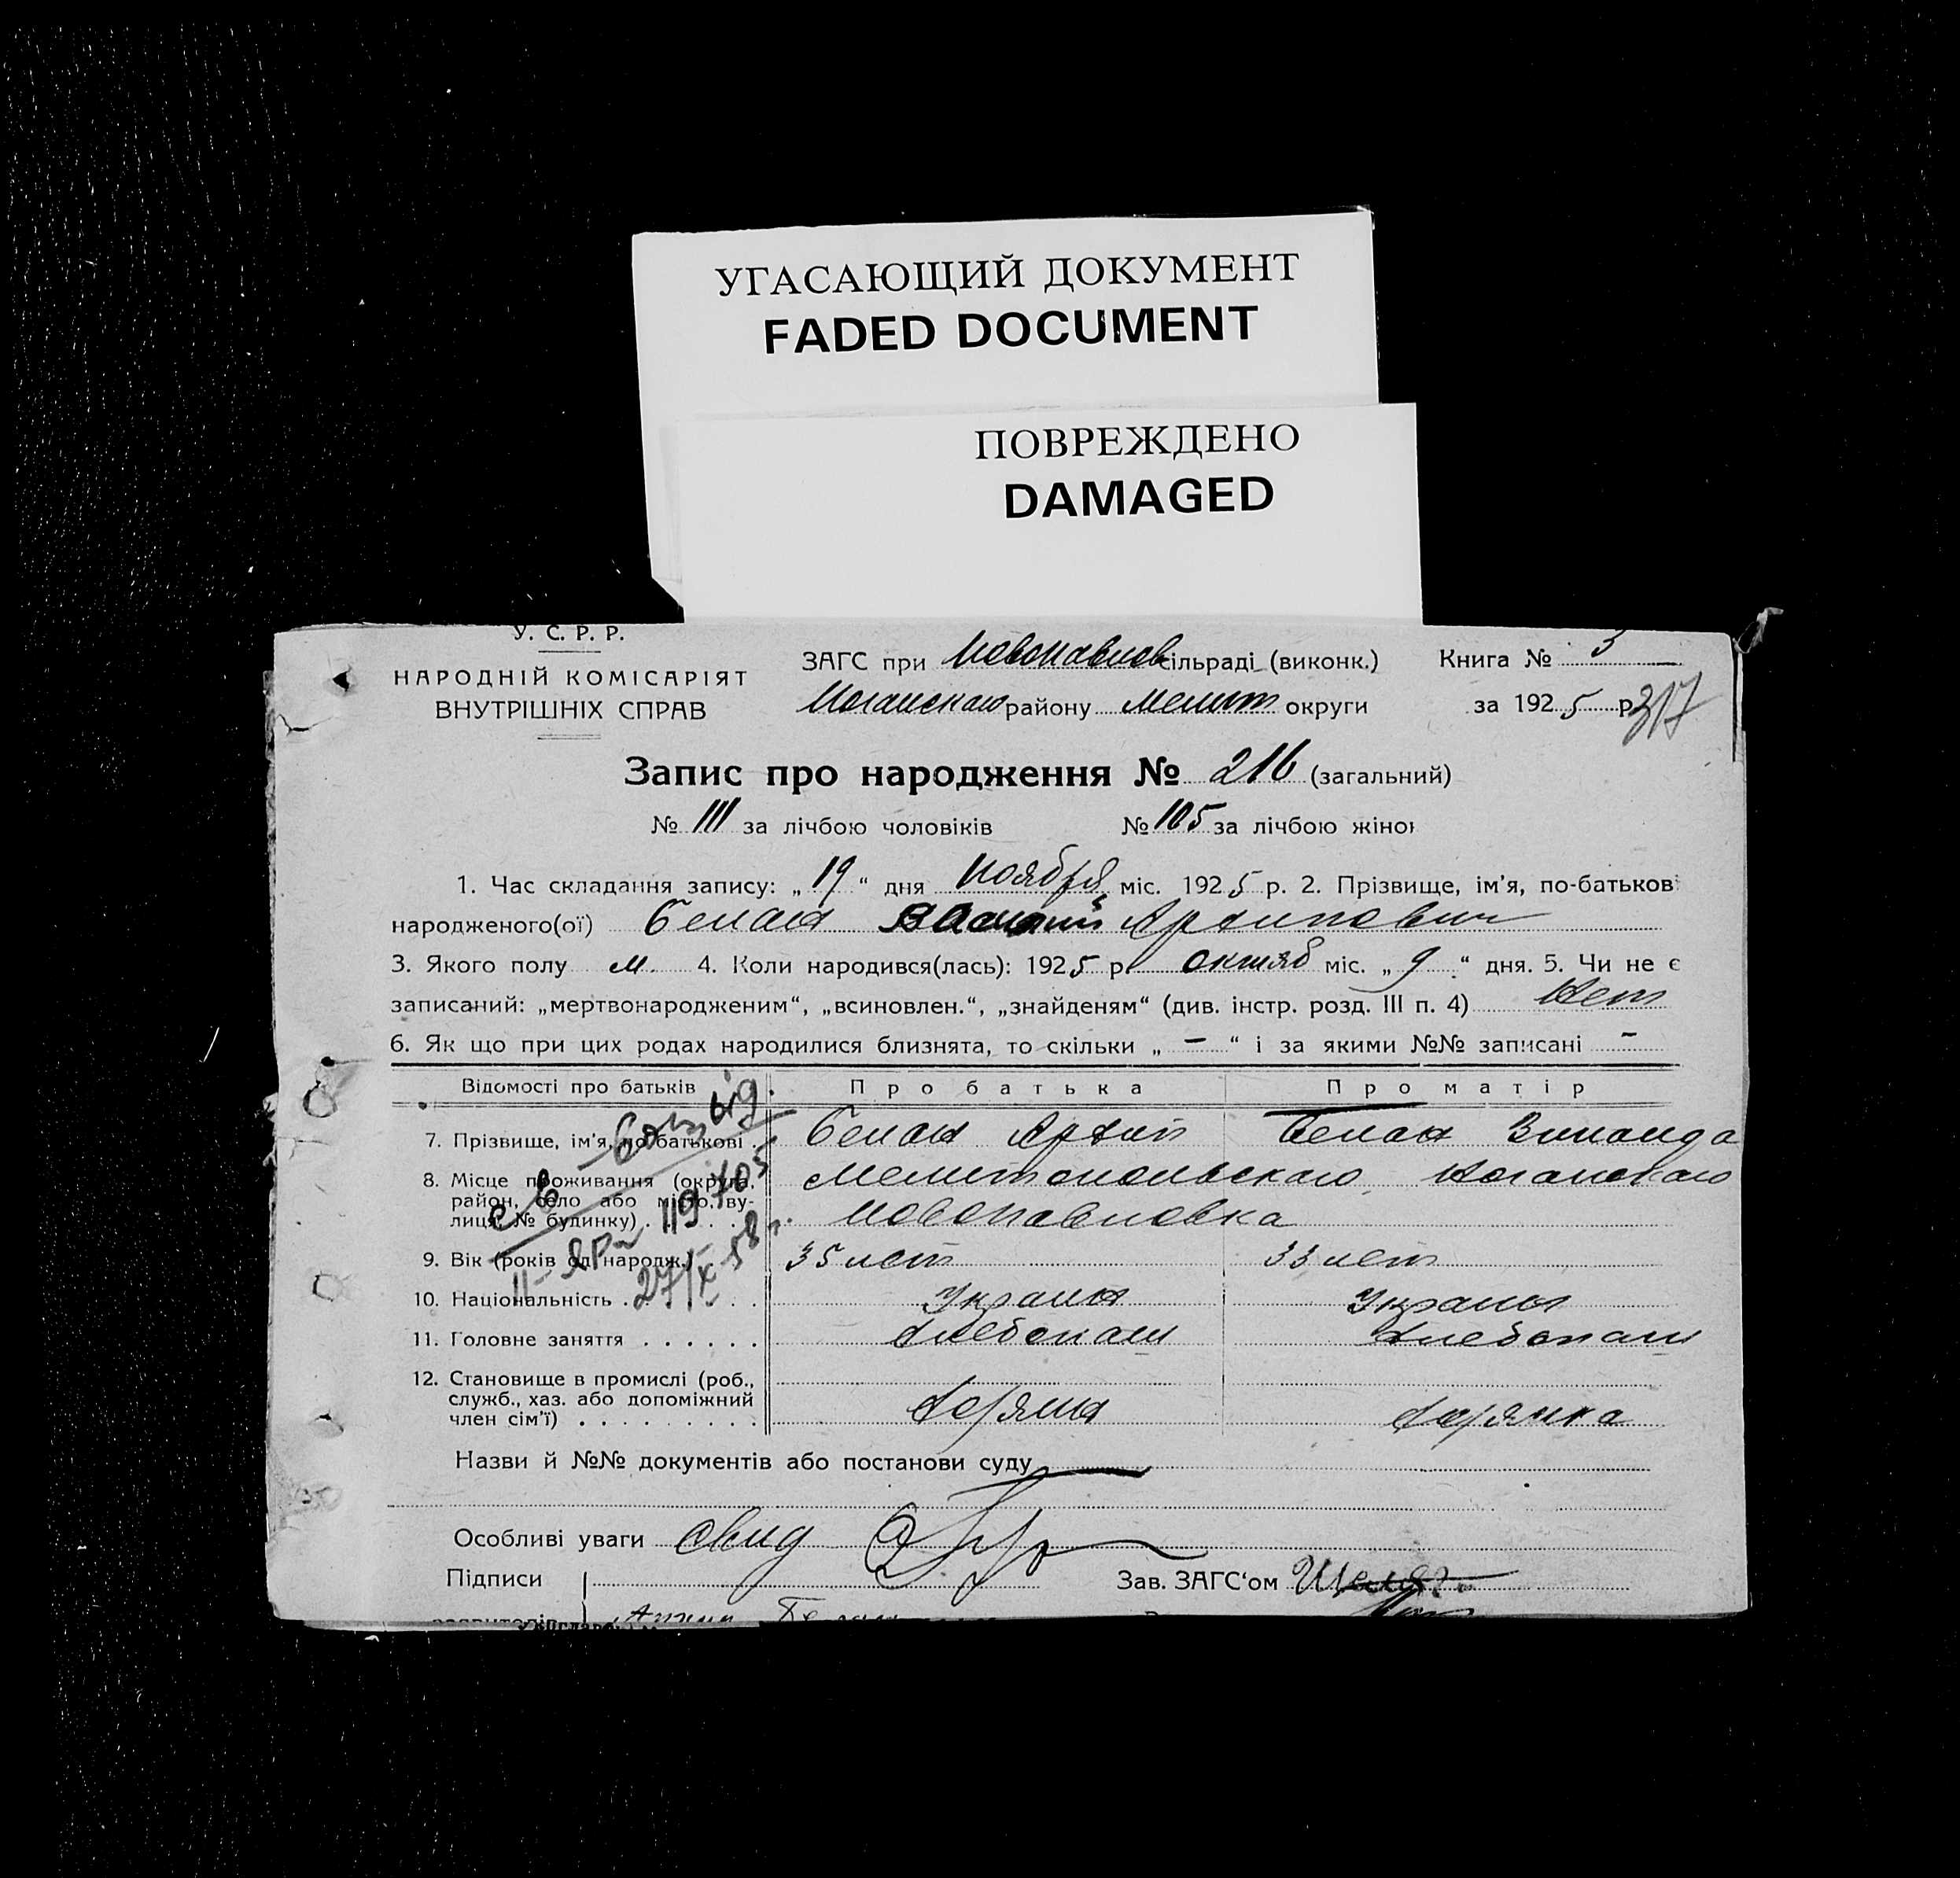 УГАСАЮЩИЙ ДОКУМЕНТ
FADED DOCUMENT
ПОВРЕЖДЕНО
DAMAGED
У. С. Р. Р.
НАРОДНІЙ КОМІСАРІЯТ
ВНУТРІШНІХ СПРАВ
ЗАГС при Новопавлов сільраді (виконк.)
Ногайскаго району Мелит округи
Книга № 3
за 1925 р. 317
Запис про народження № 216 (загальний)
№ 111 за лічбою чоловіків № 105 за лічбою жіно
1. Час складання запису: „19“ дня Ноября міс. 1925 р. 2. Прізвище, ім’я, по-батьков
народженого(ої) Белан Василий Архипович
3. Якого полу м. 4. Коли народився(лась): 1925 р. октяб міс. „9“ дня. 5. Чи не є
записаний: „мертвонародженим“, „всиновлен.“, „знайденям“ (див. інстр. розд. III п. 4) Нет
6. Як що при цих родах народилися близнята, то скільки „ – “ і за якими №№ записані –
Відомості про батьків Про батька Про матір
7. Прізвище, ім’я, по батькові . Белан Архип Белан Зинаида
8. Місце проживання (округа, район, село або місто, ву-лиця, № будинку) . Мелитопольскаго Ногайскаго
Новопавловка
9. Вік (років од народж.) 35 лет 33 лет
10. Національність . Украин Украин
11. Головне заняття . . . . . . Хлебопаш Хлебопаш
12. Становище в промислі (роб., служб., хаз. або допоміжний член сім’ї) . . . . . . . . . Хозяин Хозяйка
27/X 58 г.
Назви й №№ документів або постанови суду
Особливі уваги свид
Підписи Зав. ЗАГС‘ом